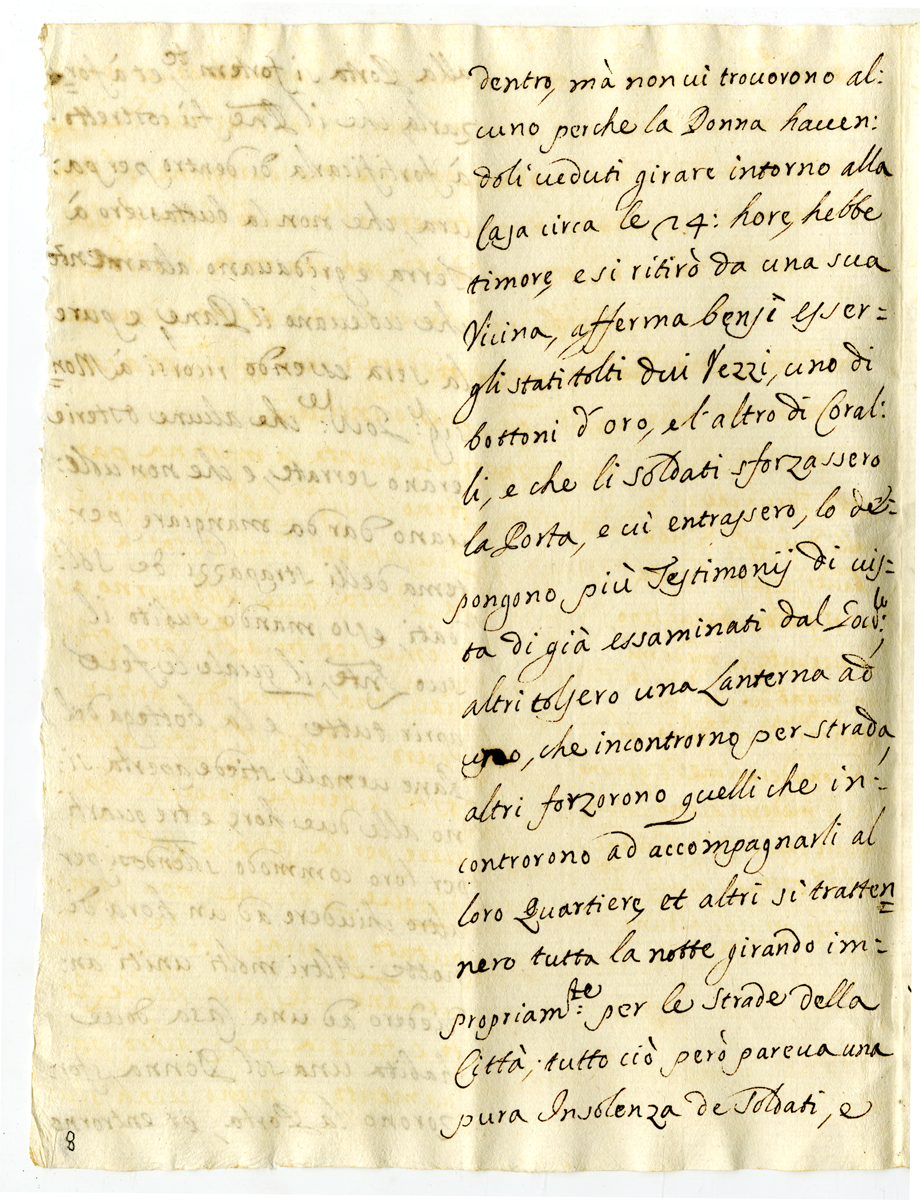 dentro, mà non vi trovorono al:
cuno perche la Donna haven:
doli veduti girare intorno alla
Casa circa le 24: hore, hebbe
timore, e si ritirò da una sua
Vicina, afferma bensì esser=
gli stati tolti dui Vezzi, uno di
bottoni d'oro, e l'altro di Coral:
li, e che li soldati sforzassero
la Porta, e vi entrassero, lo de=
pongono più Testimonij di vis=
ta di già essaminati dal
altri tolsero una Lanterna ad
uno, che incontrorno per strada,
altri forzorono quelli che in=
controrono ad accompagnarli al
loro Quartiere, et altri si tratten=
nero tutta la notte girando im=
propriam:te per le strade della
Città; tutto ciò però pareva una
pura Insolenza de Soldati, e
8